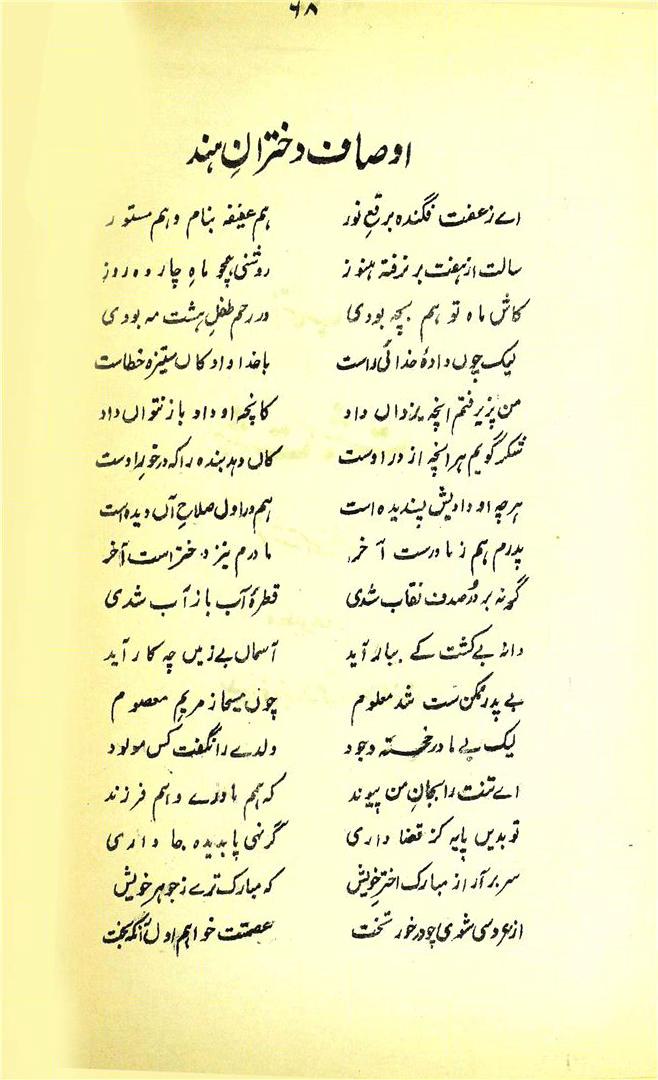 ۶۸
اوصاف دخترانِ ہند
اے ز عفت فگندہ برقعِ نور ہم عفیفہ بنام و ہم مستور
سالت از ہفت بر نرفتہ ہنوز روشنی ہمچو ماہِ چار دہ روز
کاش ماہ تو ہم بچہ بودی در رحم طفلِ ہشت مہ بودی
لیک چوں دادۂ خدائی راست با خدا دادگاں ستیزہ خطاست
من پزیرفتم انچہ یزداں داد کانچہ او داد باز نتواں داد
شکر گویم ہر انچہ از در اوست کاں دہد بندہ را کہ در خورِ اوست
ہرچہ او دادیش پسندیدہ است ہم در اول صلاحِ آں دیدہ است
پدرم ہم ز مادرست آخر مادرم نیز دختر است آخر
گر نہ بر در صدف نقاب شدی قطرۂ آب باز آب شدی
دانہ بے کشت کے ببار آید آسماں بے زمیں چہ کار آید
بے پدر ممکن ست شد معلوم چوں مسیحا ز مریمِ معصوم
لیک بے مادر خجستہ وجود ولدے را نگفت کس مولود
اے تنت را بجانِ من پیوند کہ ہم مادرے و ہم فرزند
تو بدیں پایہ کز قضا داری گر نہی پا بدیدہ جا داری
سر بر آر از مبارک اخترِ خویش کہ مبارک ترے ز جوہرِ خویش
از عروسی شوی چو در خور تخت عصمتت خواہم اول آنگہ بخت